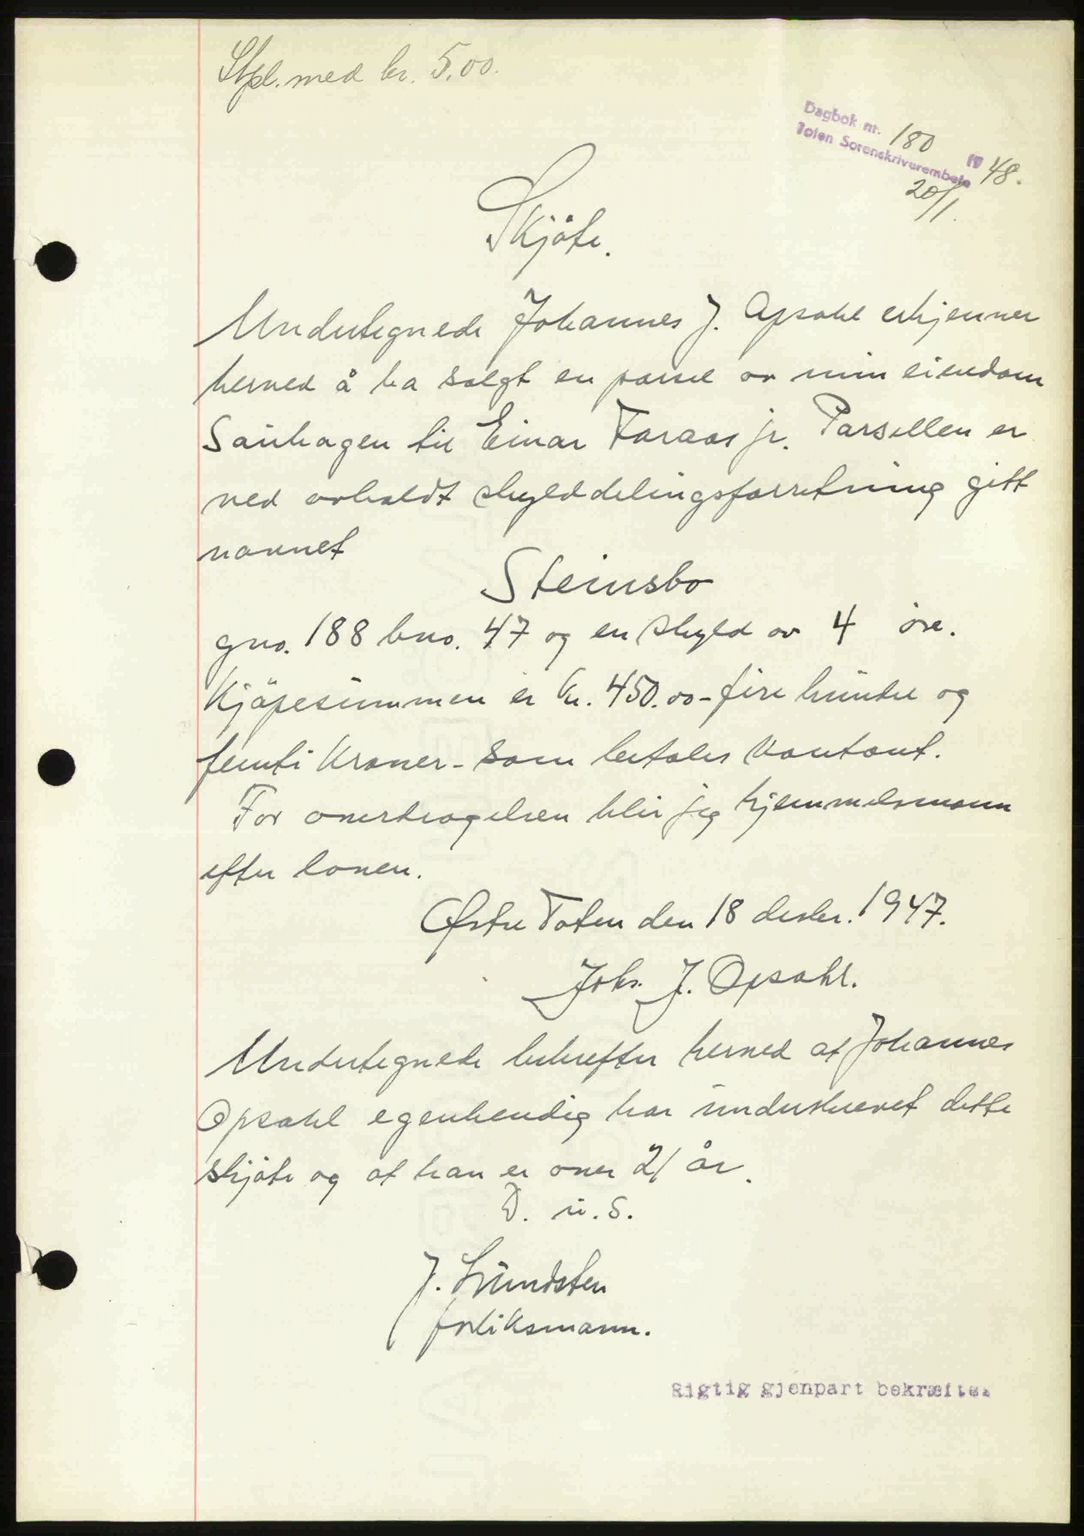 Stpl. med kr. 5.00.
Dagbok nr. 180 19 48.
Toten Sorenskriverembete
20/1.
Skjøte.
Undertegnede Johannes J. Opsahl erkjenner
herved å ha solgt en parsel av min eiendom
til Einar Faraas jr. Parsellen er
ved avholdt skylddelingsforretning gitt
navnet
Steinsbo
gno. 188 bno. 47 og en skyld av 4 øre.
Kjøpesummen er kr. 450.00 - fire hundre og
femti kroner - som betales kontant.
For overdragelsen blir jeg hjemmelsmann
efter loven.
Østre Toten den 18 desbr. 1947.
Johs. J. Opsahl.
Undertegnede bekrefter herved at Johannes
Opsahl egenhendig har underskrevet dette
skjøte og at han er over 21 år.
D. u. s.
J. Lundsten
forliksmann.
Rigtig gjenpart bekræftes